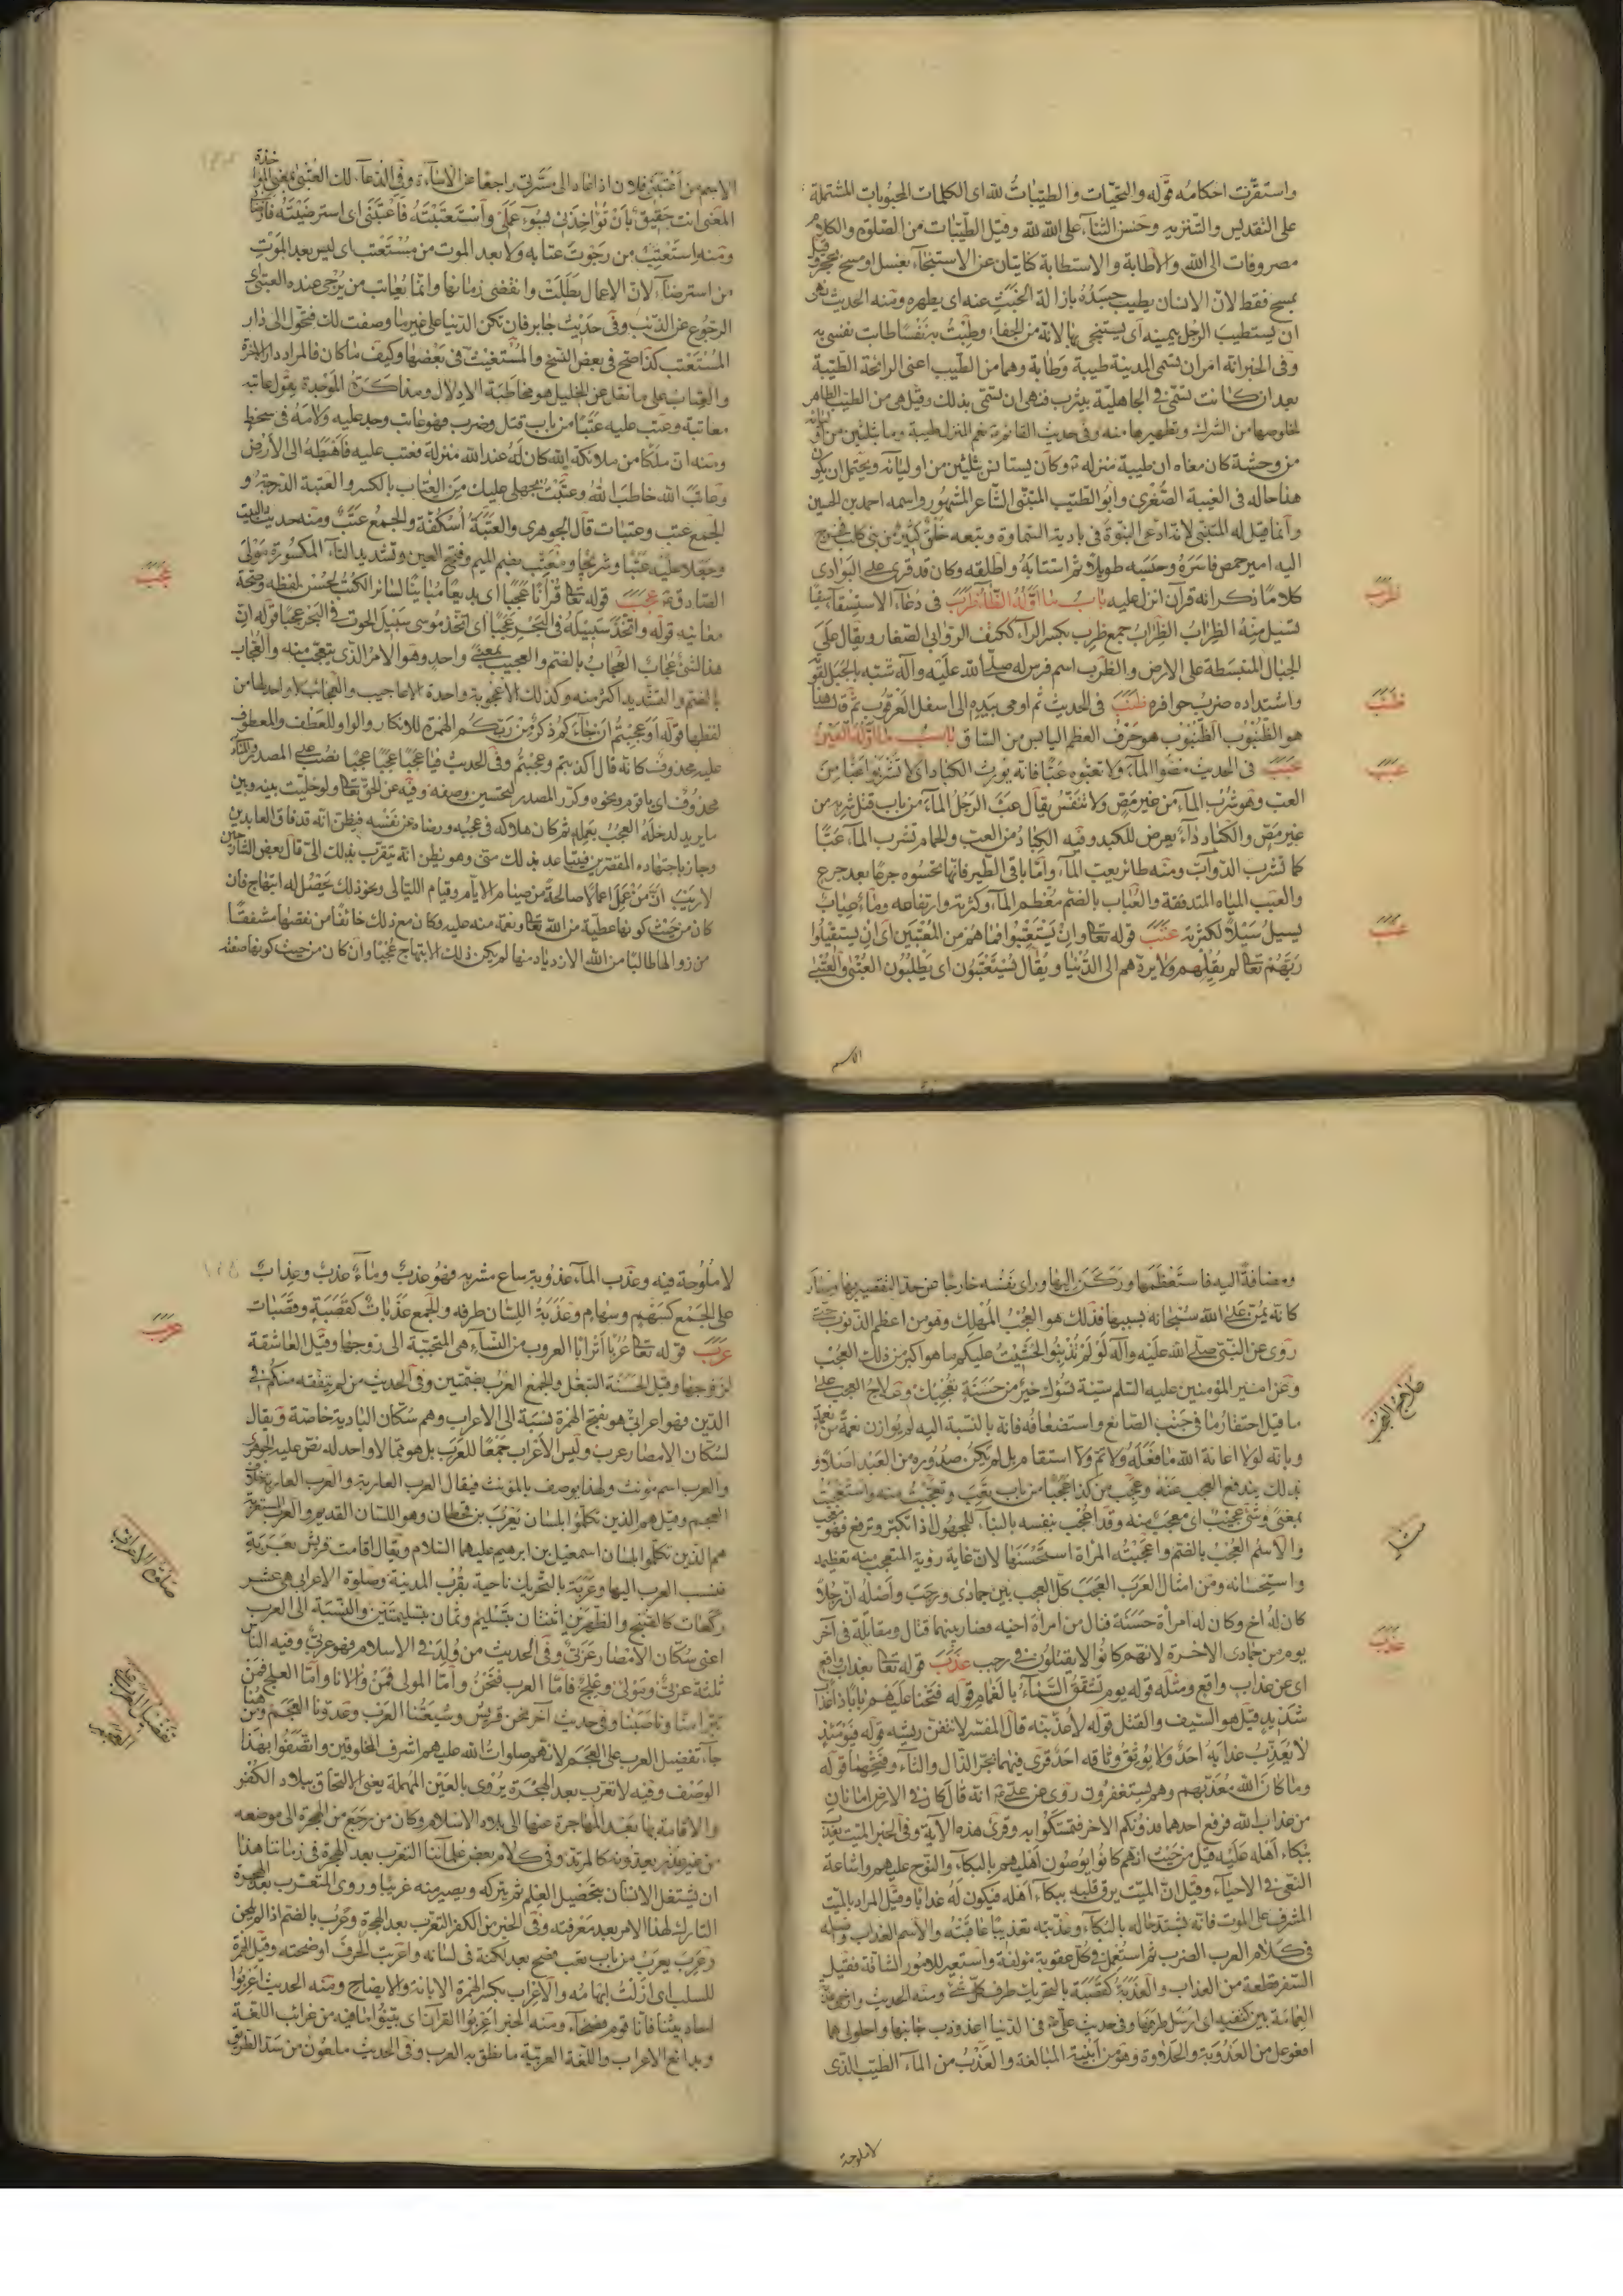 واستقرت احكامه قوله والتحيات والطيبات لله اى الكلمات المحبوبات المشتملة
على التقديس والتنزيه وحسن الثناء على الله وقيل الطيبات من الصلوة والكلام
مصروفات الى الله والاطابة والاستطابة كنايتان عن الاستنجاء بغسل او مسح بحجر وقيل
بمسح فقط لان الانسان يطيب جسده بازالة الخبث عنه اى يطهره ومنه الحديث نهى
ان يستطيب الرجل بيمينه اى يستنجى بها لانه من الجفاء وطبت به نفسا طابت نفسى به
وفى الخبر انه امر ان تسمى المدينة طيبة وطابة وهما من الطيب اعنى الرائحة الطيبة
بعد ان كانت تسمى فى الجاهلية بيثرب فنهى ان تسمى بذلك وقيل هى من الطيب الطاهر
لخلوصها من الشرك وتطهيرها منه وفى حديث القائم نعم المنزل طيبة وما بثلثين من
من وحشة كان معناه ان طيبة منزله وكان يستانس بثلثين من اوليائه ويحتمل ان يكون
هذا حاله فى الغيبة الصغرى وابو الطيب المتنبى الشاعر المشهور واسمه احمد بن الحسين
وانما قيل له المتنبى لانه ادعى النبوة فى بادية السماوة وتبعه خلق كثير من بنى كلب فخرج
اليه امير حمص فاسره وحبسه طويلا ثم استتابه واطلقه وكان قد قرى على البوادى
كلاما ذكر انه قرآن انزل عليه باب ما اوله الظاء ظرب فى دعاء الاستسقاء
ظرب
تسيل منه الظراب الظراب جمع ظرب بكسر الراء ككتف الروابى الصغار ويقال على
الجبال المنبسطة على الارض والظرب اسم فرس له صلى الله عليه وآله شبه بالجبل لقوته
واشتداده ضرب حوافره ظنب فى الحديث ثم اومى بيده الى اسفل العرقوب ثم قال هذا
ظنب
هو الظنبوب الظنبوب هو حرف العظم اليابس من الساق باب ما اوله العين
عبب فى الحديث مصوا الماء ولا تعبوه عبا فانه يورث الكباد اى لا تشربوا عبا من
عبب
العب وهو شرب الماء من غير مص ولا تنفس يقال عب الرجل الماء من باب قتل شربه من
غير مص والكباد داء يعرض للكبد وفيه الكباد من العب والحمام تشرب الماء عبا
كما تشرب الدواب ومنه طائر يعب الماء واما باقى الطير فانها تحسوه جرعا بعد جرع
والعبب المياه المتدفقة والعباب بالضم معظم الماء وكثرته وارتفاعه وماء عباب
يسيل سيلا لكثرته عتب قوله تعالى وان يستعتبوا فما هم من المعتبين اى ان يستقيلوا
عتب
ربهم تعالى لم يقلهم ولا يردهم الى الدنيا ويقال يستعتبون اى يطلبون العتبى والعتبى
الاسم
الاسم من اعتبنى فلان اذا عاد الى مسرتى راجعا عن الاساءة وفى الدعاء لك العتبى بمعنى المؤاخذة
المعنى انت حقيق بان تؤاخذنى بسوء عملى واستعتبته فاعتبنى اى استرضيته فارضانى
ومنه استعتب من رجوت عتابه ولا بعد الموت من مستعتب اى ليس بعد الموت
من استرضاء لان الاعمال بطلت وانقضى زمانها وانما يعاتب من يرجى عنده العتبى اى
الرجوع عن الذنب وفى حديث جابر فان تكن الدنيا على غير ما وصفت لك فتحول الى دار
المستعتب كذا صح فى بعض النسخ والمستغيث فى بعضها وكيف ما كان فالمراد دار الآخرة
والعتاب على ما نقل عن الخليل هو مخاطبة الادلال ومذاكرة الموجدة يقول عاتبه
معاتبة وعتب عليه عتبا من باب قتل وضرب فهو عاتب وجد عليه ولامه فى سخط
ومنه ان ملكا من ملائكة الله كان له عند الله منزلة فعتب عليه فاهبطه الى الارض
وعاتب الله خاطب الله وعتبت بجهلى عليك من العتاب بالكسر والعتبة الدرجة و
الجمع عتب وعتبات قال الجوهرى والعتبة اسكفة والجمع عتب ومنه حديث البيت
وجعلا عليه عتبا وشرجا ومعتب بضم الميم وفتح العين وتشديد التاء المكسورة مولى
الصادق عجب قوله تعالى قرآنا عجبا اى بديعا مباينا لسائر الكتب لحسن لفظه وصحة
عجب
معانيه قوله واتخذ سبيله فى البحر عجبا اى اتخذ موسى سبيل الحوت فى البحر عجبا قوله ان
هذا لشئ عجاب العجاب بالضم والعجيب بمعنى واحد وهو الامر الذى يتعجب منه والعجاب
بالضم والتشديد اكثر منه وكذلك الاعجوبة واحدة الاعاجيب والعجائب لا واحد لها من
لفظها قوله اوعجبتم ان جاءكم ذكر من ربكم الهمزة للانكار والواو للعطف والمعطوف
عليه محذوف كانه قال اكذبتم وعجبتم وفى الحديث فيا عجبا عجبا نصب على المصدر
محذوف اى يا قوم ونحوه وكرر المصدر لتحسين وصفه وفيه عن الحق تعالى ولو خليت بينه وبين
ما يريد لدخله العجب بعمله ثم كان هلاكه فى عجبه ورضاه عن نفسه فيظن انه قد فاق العابدين
وجاز باجتهاده المقصرين فيتباعد بذلك منى وهو يظن انه يتقرب بذلك الى قال بعض الشارحين
لا ريب ان من عمل اعمالا صالحة من صيام الايام وقيام الليالى ونحو ذلك يحصل له ابتهاج فان
كان من حيث كونها عطية من الله تعالى ونعمة منه عليه وكان مع ذلك خائفا من نقصها مشفقا
من زوالها طالبا من الله الازدياد منها لم يكن ذلك الابتهاج عجبا وان كان من حيث كونها صفته
ومضافة اليه فاستعظمها وركن اليها وراى نفسه خارجا عن حد التقصير بها وصار
كانه يمن على الله سبحانه بسببها فذلك هو العجب المهلك وهو من اعظم الذنوب حتى
روى عن النبى صلى الله عليه وآله لو لم تذنبوا لخشيت عليكم ما هو اكبر من ذلك العجب
وعن امير المؤمنين عليه السلم سيئة تسؤك خير من حسنة تعجبك وعلاج العجب على
علاج العجب
ما قيل احتقار ما فى جنب الصانع واستضعافه فانه بالنسبة اليه لم يوازن نعمة من نعمه
وبانه لولا اعانة الله ما فعله ولا تم ولا استقام بل لم يكن صدوره من العبد اصلا و
بذلك يندفع العجب عنه وعجب من كذا عجبا من باب تعب وتعجبت منه واستعجبت
بمعنى وشئ عجيب اى معجب منه وقد اعجب بنفسه بالبناء للمجهول اذا تكبر وترفع فهو معجب
والاسم العجب بالضم واعجبته المراة استحسنها لان غاية رؤية المتعجب منه تعظيمه
واستحسانه ومن امثال العرب العجب كل العجب بين جمادى ورجب واصله ان رجلا
كان له اخ وكان له امراة حسنة فنال من امراة اخيه فصار بينهما قتال ومقابلة فى آخر
يوم من جمادى الاخرة لانهم كانوا لا يقتلون فى رجب عذب قوله تعالى بعذاب واقع
عذب
اى عن عذاب واقع ومثله قوله يوم تشقق السماء بالغمام قوله فتحنا عليهم بابا ذا عذاب
شديد قيل هو السيف والقتل قوله لاعذبنه قال المفسر لانتفن ريشه قوله فيومئذ
لا يعذب عذابه احد ولا يوثق وثاقه احد قرى فيهما بجر الذال والثاء وفتحهما قوله
وما كان الله معذبهم وهم يستغفرون روى عن على انه قال كان فى الارض امانان
من عذاب الله فرفع احدهما فدونكم الاخر فتمسكوا به وقرى هذه الآية وفى الخبر الميت يعذب
ببكاء اهله عليه قيل من حيث انهم كانوا يوصون اهليهم بالبكاء والنوح عليهم واشاعة
النعى فى الاحياء وقيل ان الميت يرق قلبه ببكاء اهله فيكون له عذابا وقيل المراد بالميت
المشرف على الموت فانه يشتد حاله بالبكاء وعذبته تعذيبا عاقبته والاسم العذاب واصله
فى كلام العرب الضرب ثم استعمل فى كل عقوبة مولمة واستعير للامور الشاقة فقيل
السفر قطعة من العذاب والعذبة كقصبة بالتحريك طرف كل شئ ومنه الحديث وارخى
العمامة بين كتفيه اى ارسل طرفها وفى حديث على فى الدنيا اعذوذب جانبها واحلولى هما
افعوعل من العذوبة والحلاوة وهو من ابنية المبالغة والعذب من الماء الطيب الذى
لا ملوحة
لا ملوحة فيه وعذب الماء عذوبة ساغ مشربه فهو عذب وماء عذب وعذاب
على الجمع كسهم وسهام وعذبة اللسان طرفه والجمع عذبات كقصبة وقصبات
عرب قوله تعالى عربا اترابا العروب من النساء هى المتحببة الى زوجها وقيل العاشقة
عرب
لزوجها وقيل الحسنة التبعل والجمع العرب بضمتين وفى الحديث من لم يتفقه منكم فى
الدين فهو اعرابى هو بفتح الهمزة نسبة الى الاعراب وهم سكان البادية خاصة ويقال
لسكان الامصار عرب وليس الاعراب جمعا للعرب بل هو مما لا واحد له نص عليه الجوهرى
والعرب اسم مؤنث ولهذا يوصف بالمؤنث فيقال العرب العاربة والعرب العاربة خلاف
العجم وقيل هم الذين تكلموا بلسان يعرب بن قحطان وهو اللسان القديم والعرب المستعربة
هم الذين تكلموا بلسان اسمعيل بن ابراهيم عليهما السلام ويقال اقامت قريش بعربة
فنسب العرب اليها وعربة بالتحريك ناحية بقرب المدينة وصلوة الاعرابى هى عشر
صلوة الاعرابى
ركعات كالصبح والظهرين اثنتان بتسليم وثمان بتسليمتين والنسبة الى العرب
اعنى سكان الامصار عربى وفى الحديث من ولد فى الاسلام فهو عربى وفيه الناس
ثلثة عربى ومولى وعلج فاما العرب فنحن واما المولى فمن والانا واما العلج فمن
تبرا منا وناصبنا وفى حديث آخر نحن قريش وشيعتنا العرب وعدونا العجم ومن هنا
تفضيل العرب على العجم
جاء تفضيل العرب على العجم لانهم صلوات الله عليهم اشرف المخلوقين واتصفوا بهذا
الوصف وفيه لا تعرب بعد الهجرة يروى بالعين المهملة يعنى الالتحاق ببلاد الكفر
والاقامة بها بعد المهاجرة عنها الى بلاد الاسلام وكان من رجع من الهجرة الى موضعه
من غير عذر يعدونه كالمرتد وفى كلام بعض علمائنا التعرب بعد الهجرة فى زماننا هذا
ان يشتغل الانسان بتحصيل العلم ثم يتركه ويصير منه غريبا وروى المتعرب بعد الهجرة
التارك لهذا الامر بعد معرفته وفى الخبر من الكفر التعرب بعد الهجرة وعرب بالضم اذا لم يلحن
وعرب يعرب من باب تعب فصح بعد لكنة فى لسانه واعربت الحرف اوضحته وقيل الهمزة
للسلب اى ازلت ابهامه والاعراب بكسر الهمزة الابانة والايضاح ومنه الحديث اعربوا
احاديثنا فانا قوم فصحاء ومنه الخبر اعربوا القرآن اى بينوا ما فيه من غرائب اللغة
وبدائع الاعراب واللغة العربية ما نطق به العرب وفى الحديث ملعون من سد الطريق